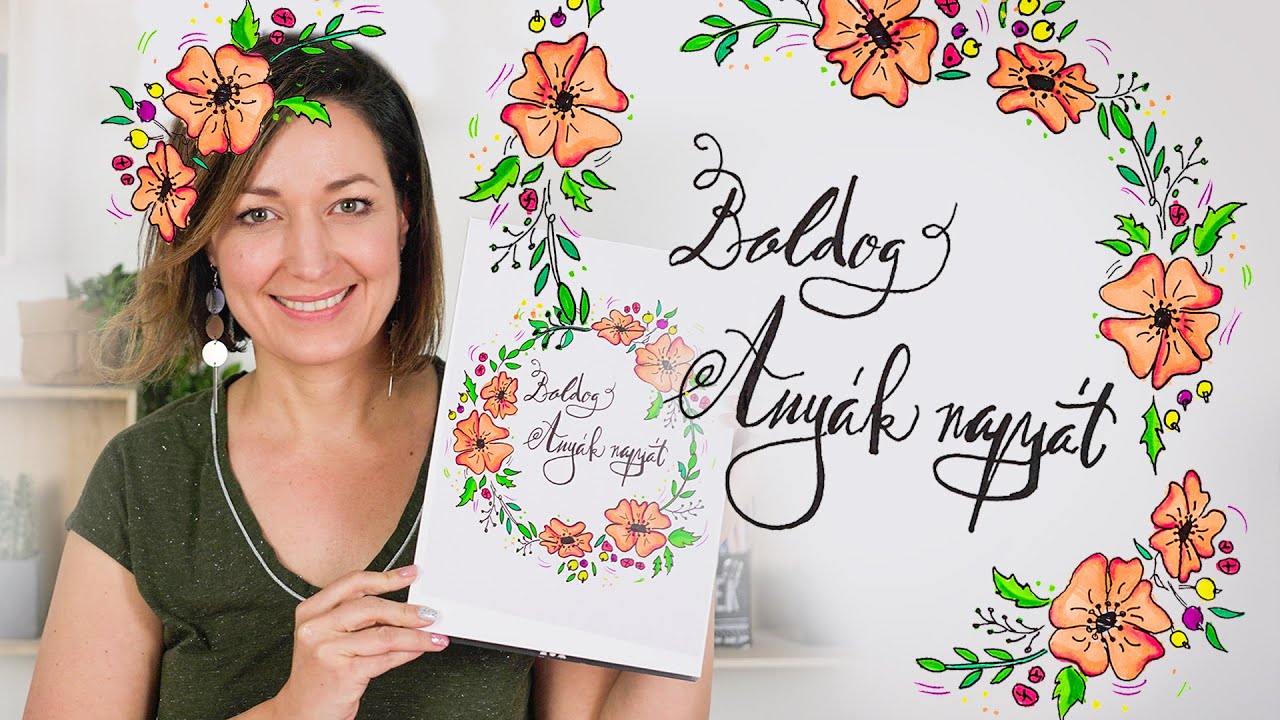 Boldog
Anyák napját
Boldog
Anyák napját